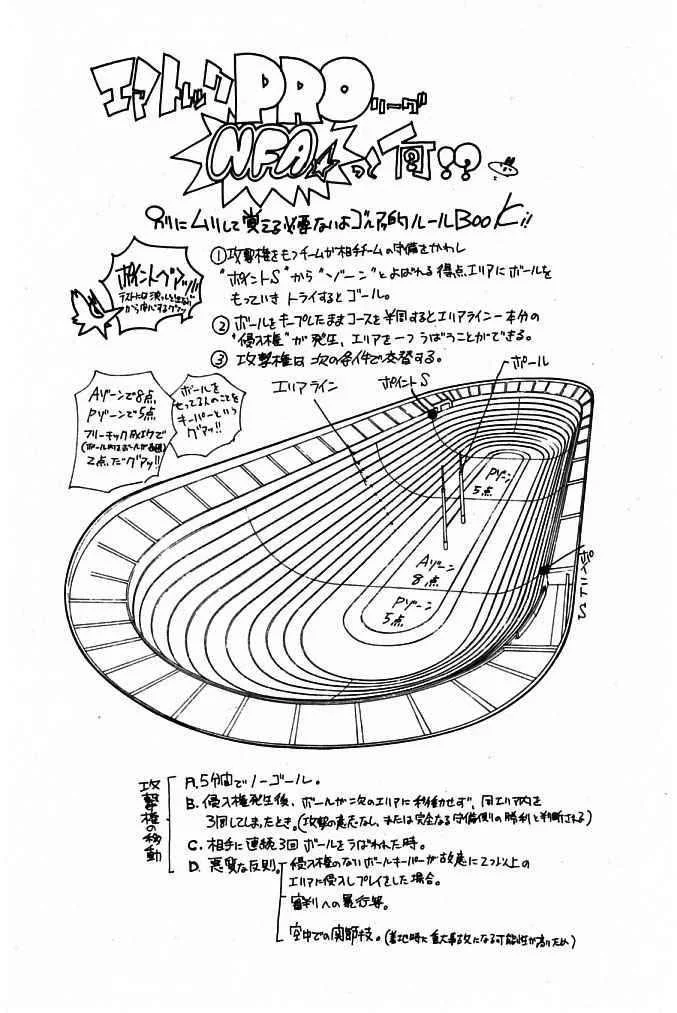 エアトレックPROリーグ
NFA☆って何!?
別にムリして覚える必要ないよゴルァ的ルールBOOK!!
ポイントグアッ!!
①攻撃権をもつチームが相手チームの守備をかわし
"ポイントS"から"ゾーン"とよばれる得点エリアにボールを
もっていきトライするとゴール。
②ボールをキープしたままコースを半周するとエリアライン一本分の
"侵入権"が発生、エリアを一つうばうことができる。
③攻撃権は次の条件で交替する。
Aゾーンで8点
Pゾーンで5点
2点、だグアッ!!
ボールを
もってる人のことを
キーパーという
グアッ!!
エリアライン
ポイントS
ポール
Pゾーン
5点
Aゾーン
8点
Pゾーン
5点
ポイントS
攻撃権の移動
A. 5分間でノーゴール。
B. 侵入権発生後、ボールが次のエリアに移動せず、同エリア内を
3回してしまったとき。(攻撃の意志なし、または完全なる守備側の勝利と判断される)
C. 相手に連続3回ボールをうばわれた時。
D. 悪質な反則。
侵入権のないボールキーパーが故意に2つ以上の
エリアに侵入しプレイをした場合。
審判への暴行等。
空中での関節技。(着地時に重大事故になる可能性が高いため)